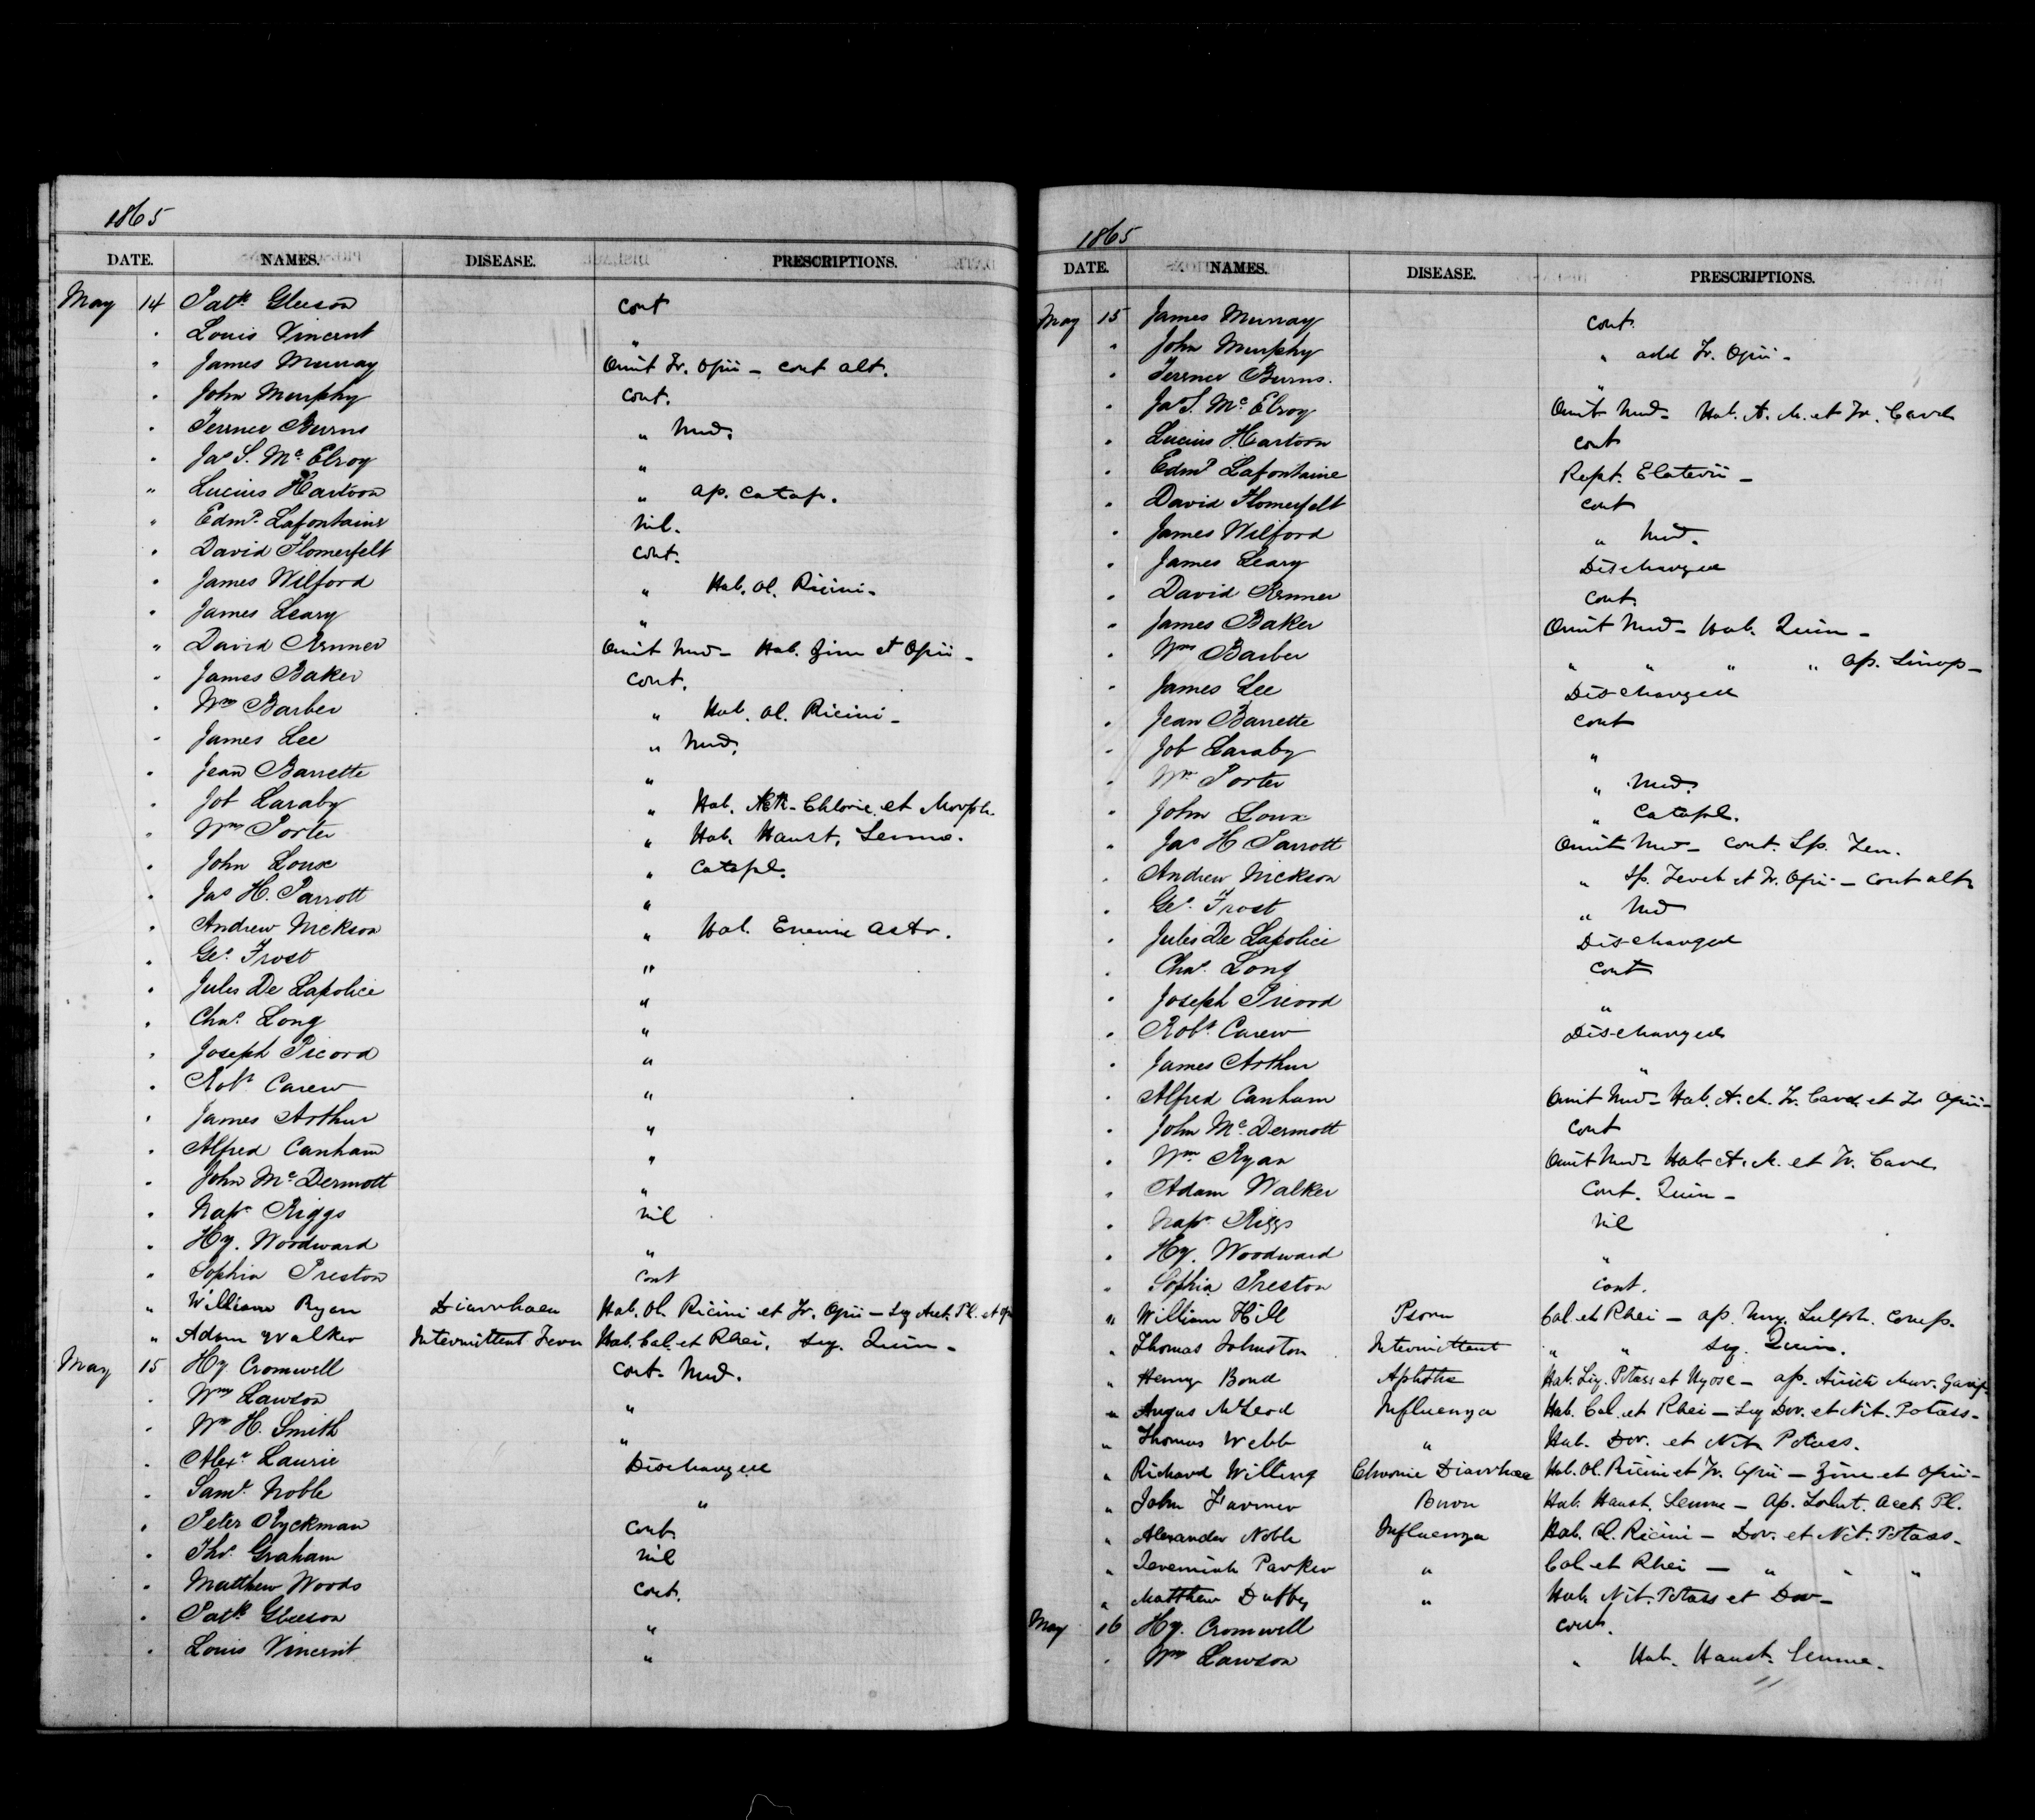 1865
DATE. NAMES. DISEASE. PRESCRIPTIONS.
May 14 Patk Gleeson cont
" Louis Vincent "
" James Murray Omit Tr. Opii – cont alt.
" John Murphy cont.
" Terence Burns " Med.
" Jas S. Mc Elroy "
" Lucius Hartson " ap. Catap.
" Edmd Lafontaine Nil.
" David Flomerfelt cont.
" James Wilford " Hab. Ol. Ricini –
" James Leary "
" David Renner Omit Med – Hab. Zinc et Opii –
" James Baker cont.
" Wm Barber " Hab. Ol. Ricini –
" James Lee " Med.
" Jean Barrette "
" Job Laraby " Hab. Aeth. Chloric. et Morph.
" Wm Porter " Hab. Haust. Sennae.
" John Loux " Catapl.
" Jas H. Parrott "
" Andrew Nickson " Hab. Enema Astr.
" Geo. Frost "
" Jules De Lapolice "
" Chas. Long "
" Joseph Picord "
" Robt Carew "
" James Arthur "
" Alfred Canham "
" John Mc Dermott "
" Napn Riggs Nil
" Hy. Woodward "
" Sophia Preston cont
" William Ryan Diarrhaea Hab. Ol. Ricini et Tr. Opii – Seq Acet. Pl. et Op
" Adam Walker Intermittent Fever Hab. Cal. et Rhei. Seq. Quin –
May 15 Hy. Cromwell cont. Med.
" Wm Lawson "
" Wm H. Smith "
" Alexr Laurie Discharged
" Saml Noble "
" Peter Ryckman cont
" Thos. Graham Nil
" Matthew Woods cont.
" Patk Gleeson "
" Louis Vincent "
1865
DATE. NAMES. DISEASE. PRESCRIPTIONS.
May 15 James Murray cont.
" John Murphy " add Tr. Opii –
" Terence Burns. "
" Jas S. Mc Elroy Omit Med – Hab. A. M. et Tr. Card
" Lucius Hartson cont
" Edmd Lafontaine Rept. Elaterii –
" David Flomerfelt cont
" James Wilford " Med.
" James Leary Discharged
" David Renner cont.
" James Baker Omit Med – Hab. Quin –
" Wm Barber " " " " ap. Sinap –
" James Lee Discharged
" Jean Barrette cont
" Job Laraby "
" Wm Porter " Med.
" John Loux " Catapl.
" Jas H Parrott Omit Med – cont. Sp. Ten.
" Andrew Nickson " Sp. et Tr. Opii – cont alt
" Geo. Frost " Med
" Jules De Lapolice Discharged
" Chas. Long cont
" Joseph Picord "
" Robt Carew Discharged
" James Arthur "
" Alfred Canham Omit Med – Hab. A. M. Tr. Card. et Tr Opii –
" John Mc Dermott cont
" Wm Ryan Omit Med – Hab. A. M. et Tr. Card.
" Adam Walker cont. Quin –
" Napn Riggs Nil
" Hy. Woodward "
" Sophia Preston cont.
" William Hill Psora Cal. et Rhei – ap. Ung. Sulph. Comp.
" Thomas Johnston Intermittent " " Seq. Quin.
" Henry Bond Aphtha Hab. Liq. Potass et Hyosc – ap. Mur. Garg.
" Angus McLeod Influenza Hab. Cal. et Rhei – Seq Dov. et Nit. Potass –
" Thomas Webb " Hab. Dov. et Nit. Potass.
" Richard Willing Chronic Diarrhaea Hab. Ol. Ricini et Tr. Opii – Zinc et Opii –
" John Farmer Burn Hab. Haust. Sennae – Ap. Solut. Acet. Pl.
" Alexander Noble Influenza Hab. Ol. Ricini – Dov. et Nit. Potass.
" Jeremiah Parker " Cal. et Rhei – " " "
" Matthew Duffey " Hab. Nit. Potass et Dov –
May 16 Hy. Cromwell cont.
" Wm Lawson " Hab. Haust. Sennae.